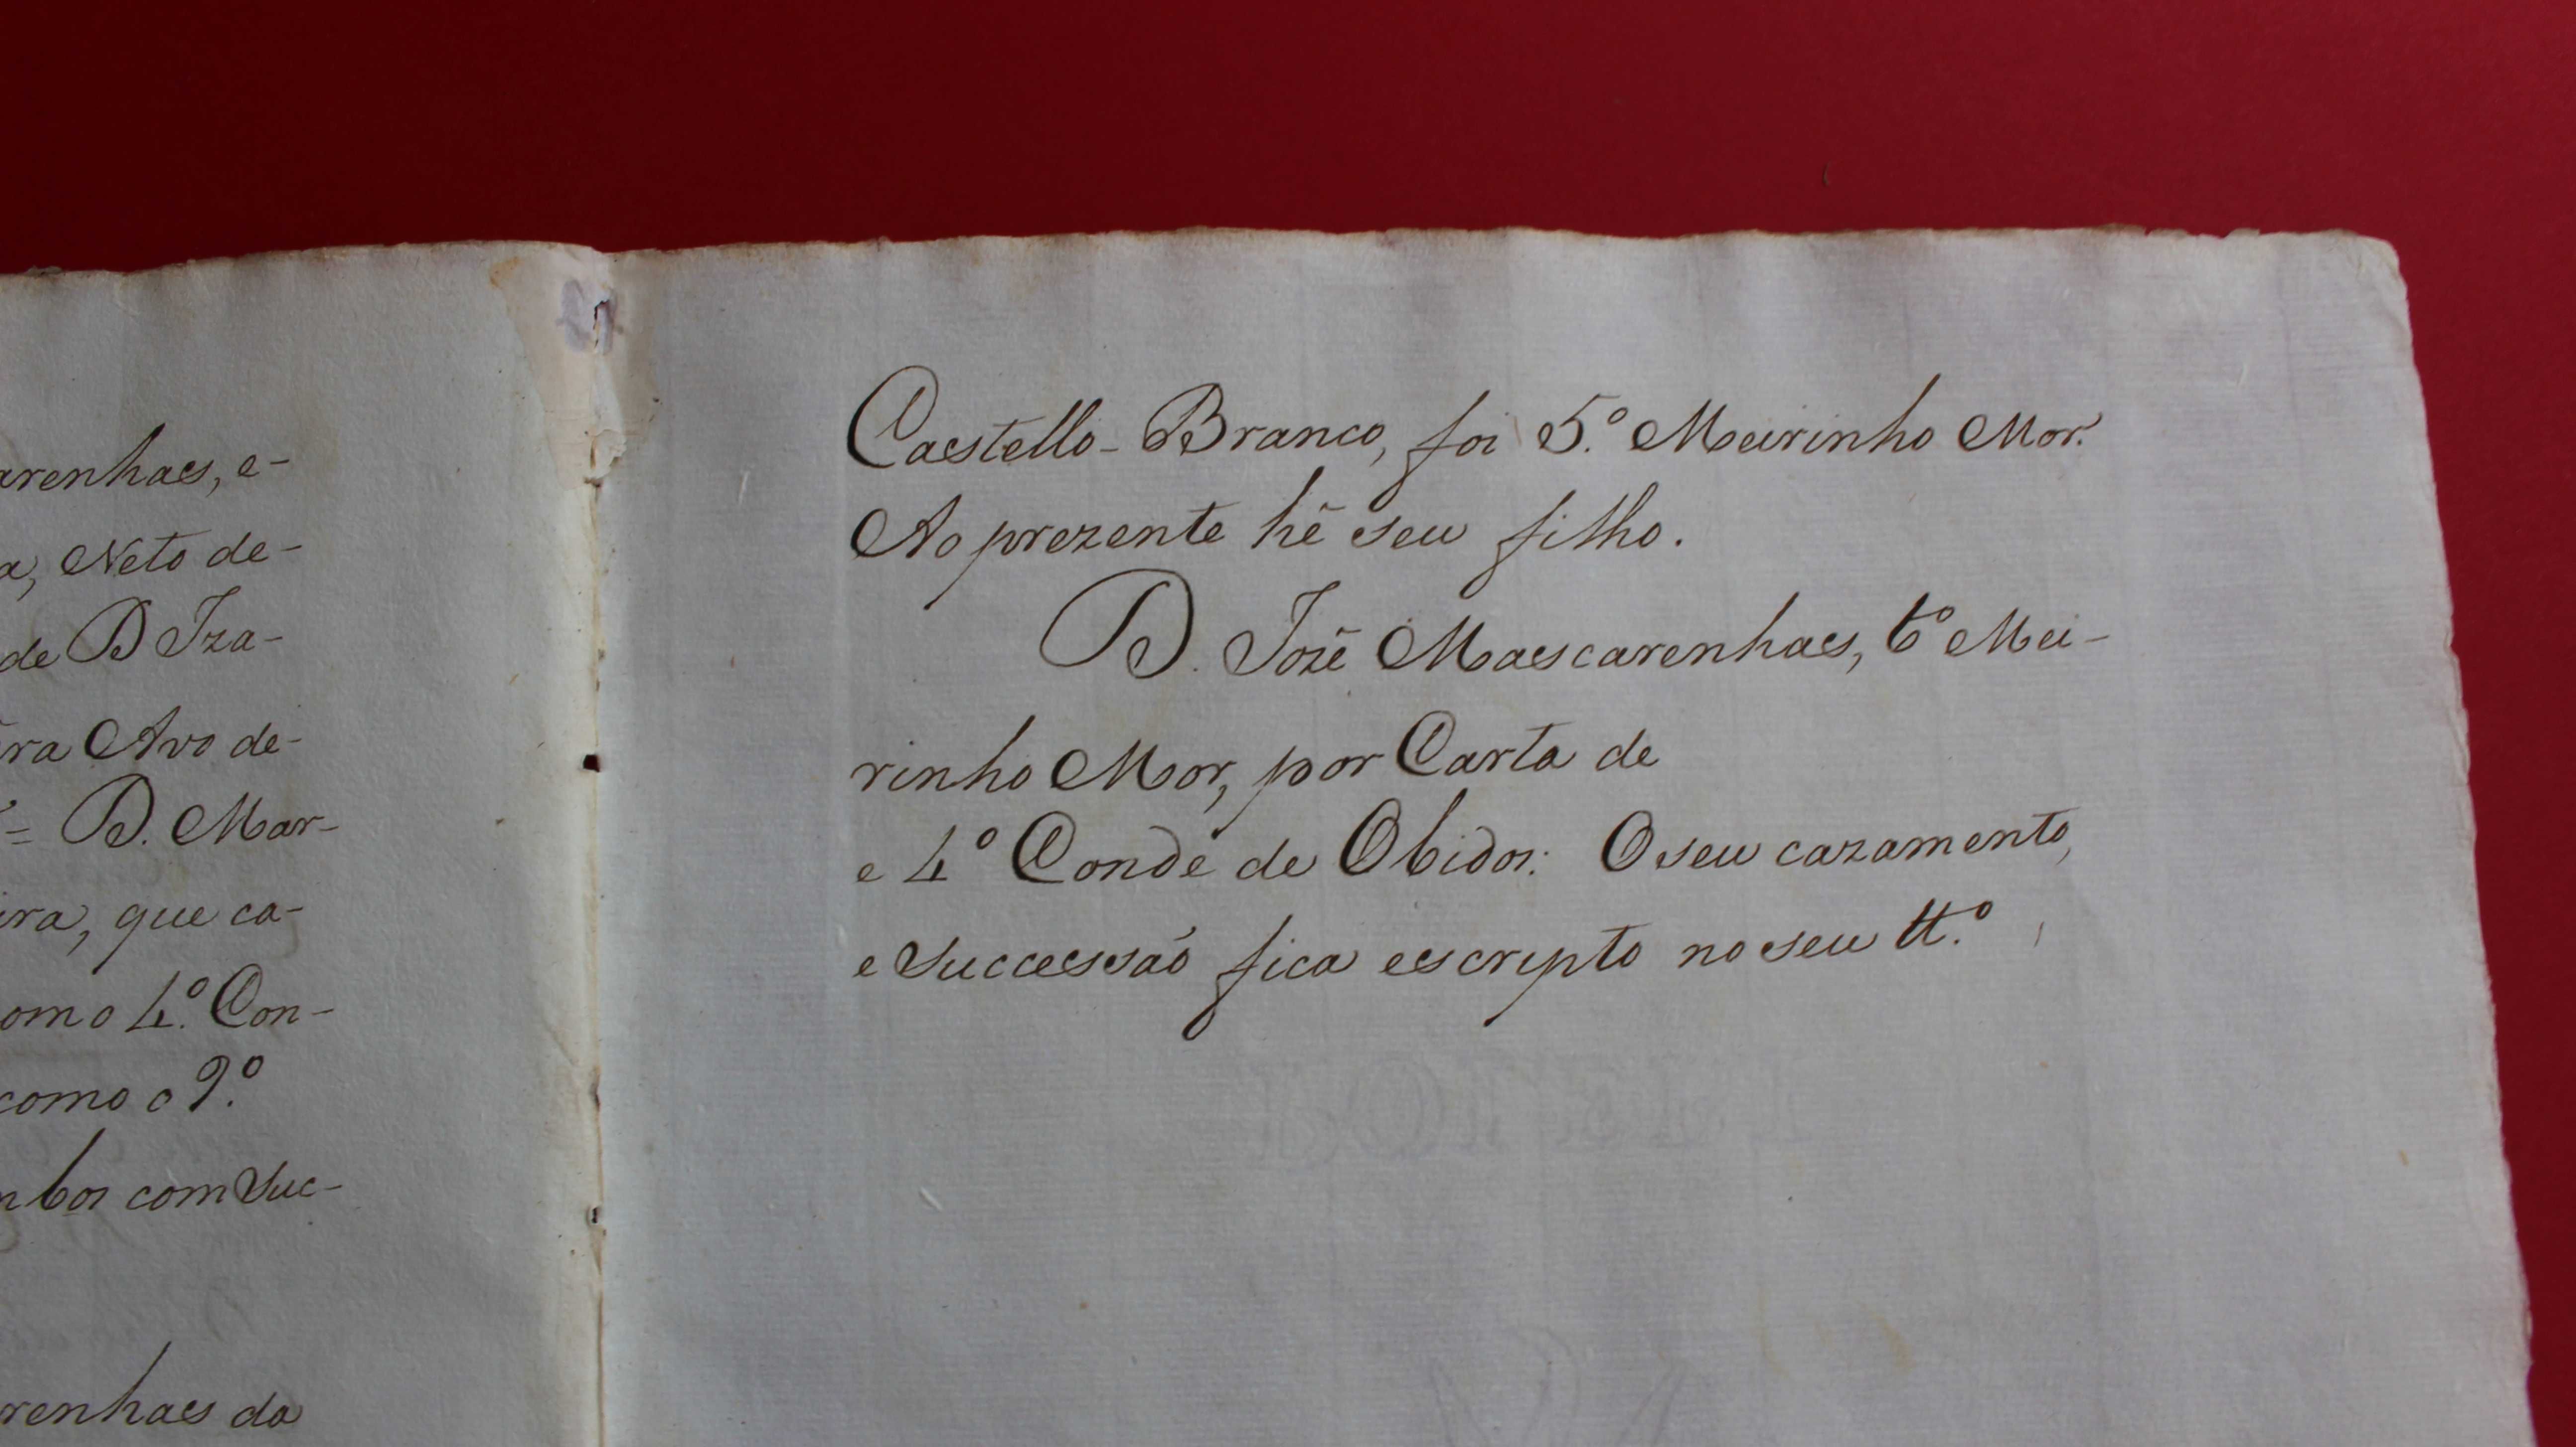 arenhas, e-
a, Neto de-
de D Iza-
ra Avo de-
= D. Mar-
ira, que ca-
omo 4.º Con-
como o 9.º
mbos com Suc-
renhas da
Castello-Branco, foi 5.º Meirinho Mor.
Ao prezente hé seu filho.
D. Jozé Mascarenhas, 6º Mei-
rinho Mor, por Carta de
e 4º Conde de Obidos: O seu cazamento,
e Successaõ fica escripto no seu tt.º